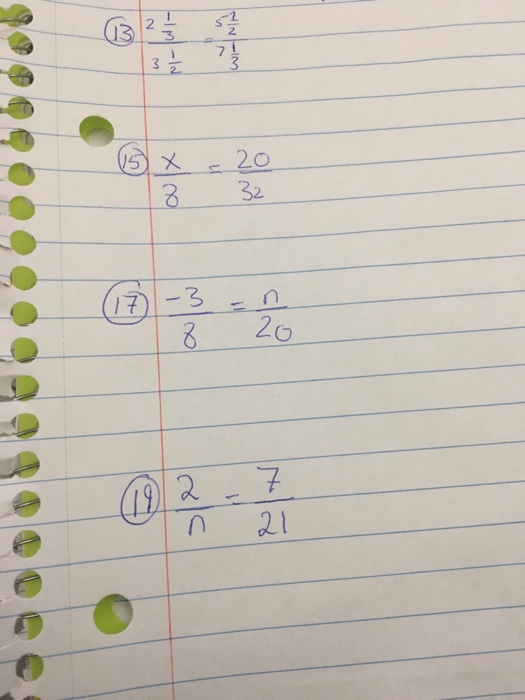 13 2 1/3 / 3 1/2 = 5 1/2 / 7 1/3
15 x/8 = 20/32
17 -3/8 = n/20
19 2/n = 7/21